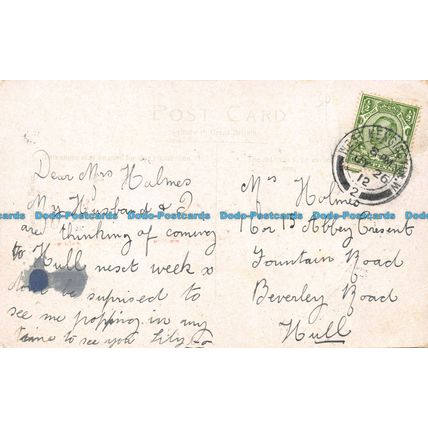 POST CARD
Dear Mrs Holmes
My Husband & I
are thinking of coming
to Hull next week so
dont be suprised to
see me popping in any
time to see you Lily
Mrs Holmes
16 or 15 Abbey Cresent
Fountain Road
Beverley Road
Hull
Dodo-Postcards Dodo-Postcards Dodo-Postcards
Dodo-Postcards Dodo-Postcards Dodo-Postcards